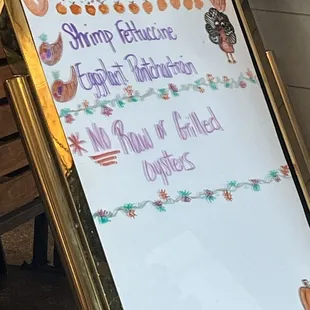 Shrimp Fettuccine
Eggplant Pontchartrain
* NO Raw or Grilled
oysters